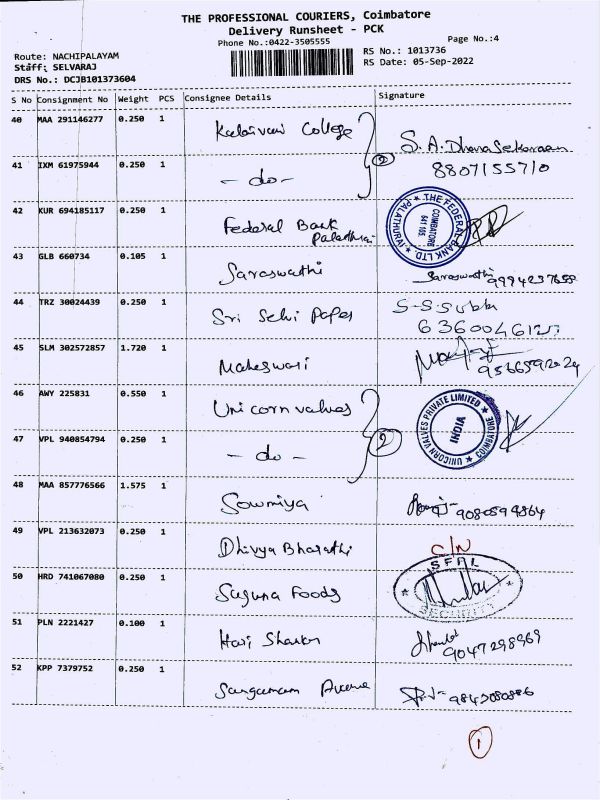 THE PROFESSIONAL COURIERS, Coimbatore
Delivery Runsheet - PCK
Phone No.:0422-3505555
Page No.:4
Route: NACHIPALAYAM
RS No.: 1013736
Staff: SELVARAJ
RS Date: 05-Sep-2022
DRS No.: DCJB101373604
S No Consignment No Weight PCS Consignee Details Signature
40 MAA 291146277 0.250 1 Kalaivani College S.A. Dhanasekaraan
2
41 IXM 61975944 0.250 1 - do - 8807155710
42 KUR 694185117 0.250 1 Federal Bank
THE FEDERAL BANK LTD. PALATHURAI COIMBATORE 641 105
43 GLB 660734 0.105 1 Saraswathi Saraswathi
44 TRZ 30024439 0.250 1 Sri Selvi Paper S-S Subbu
45 SLM 302572857 1.720 1 Maheswari
9566592024
46 AWY 225831 0.550 1 Unicorn valves
2
UNICORN VALVES PRIVATE LIMITED COIMBATORE INDIA
47 VPL 940854794 0.250 1 - do -
48 MAA 857776566 1.575 1 Sowmiya
49 VPL 213632073 0.250 1 Dhivya Bharathi C/N
50 HRD 741067080 0.250 1 Suguna Foods
SFPL SECURITY
51 PLN 2221427 0.100 1 Hari Sharan
9047298969
52 KPP 7379752 0.250 1 Sangamam Avenue
1